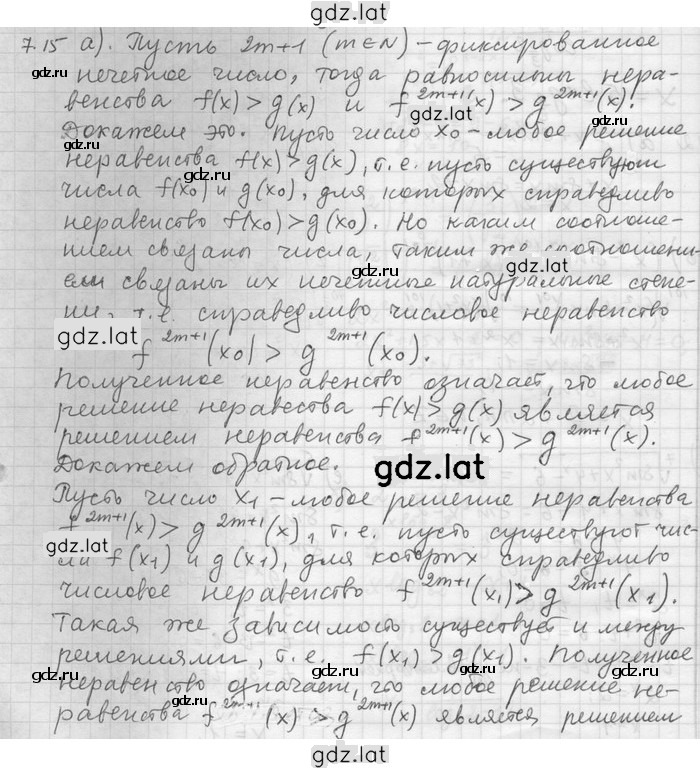 gdz.lat
7.15 а). Пусть 2m+1 (m∈N) - фиксированное
gdz.lat
нечетное число, тогда равносильны нера-
gdz.lat
венства f(x) > g(x) и f^2m+1(x) > g^2m+1(x).
Докажем это. Пусть число x₀ - любое решение
неравенства f(x) > g(x), т.е. пусть существуют
gdz.lat
числа f(x₀) и g(x₀), для которых справедливо
неравенство f(x₀) > g(x₀). Но каким соотноше-
нием связаны числа, таким же соотношени-
gdz.lat
ем связаны их нечетные натуральные степе-
ни, т.е. справедливо числовое неравенство
gdz.lat
f^2m+1(x₀) > g^2m+1(x₀).
Полученное неравенство означает, что любое
gdz.lat
решение неравества f(x) > g(x) является
решением неравенства f^2m+1(x) > g^2m+1(x).
Докажем обратное.
gdz.lat
Пусть число x₁ - любое решение неравенства
f^2m+1(x) > g^2m+1(x), т.е. пусть существуют чис-
gdz.lat
ли f(x₁) и g(x₁), для которых справедливо
числовое неравенство f^2m+1(x₁) > g^2m+1(x₁).
gdz.lat
Такая же зависимость существует и между
решениями, т.е. f(x₁) > g(x₁). Полученное
gdz.lat
неравенство означает, что любое решение не-
gdz.lat
равенства f^2m+1(x) > g^2m+1(x) является решением
gdz.lat